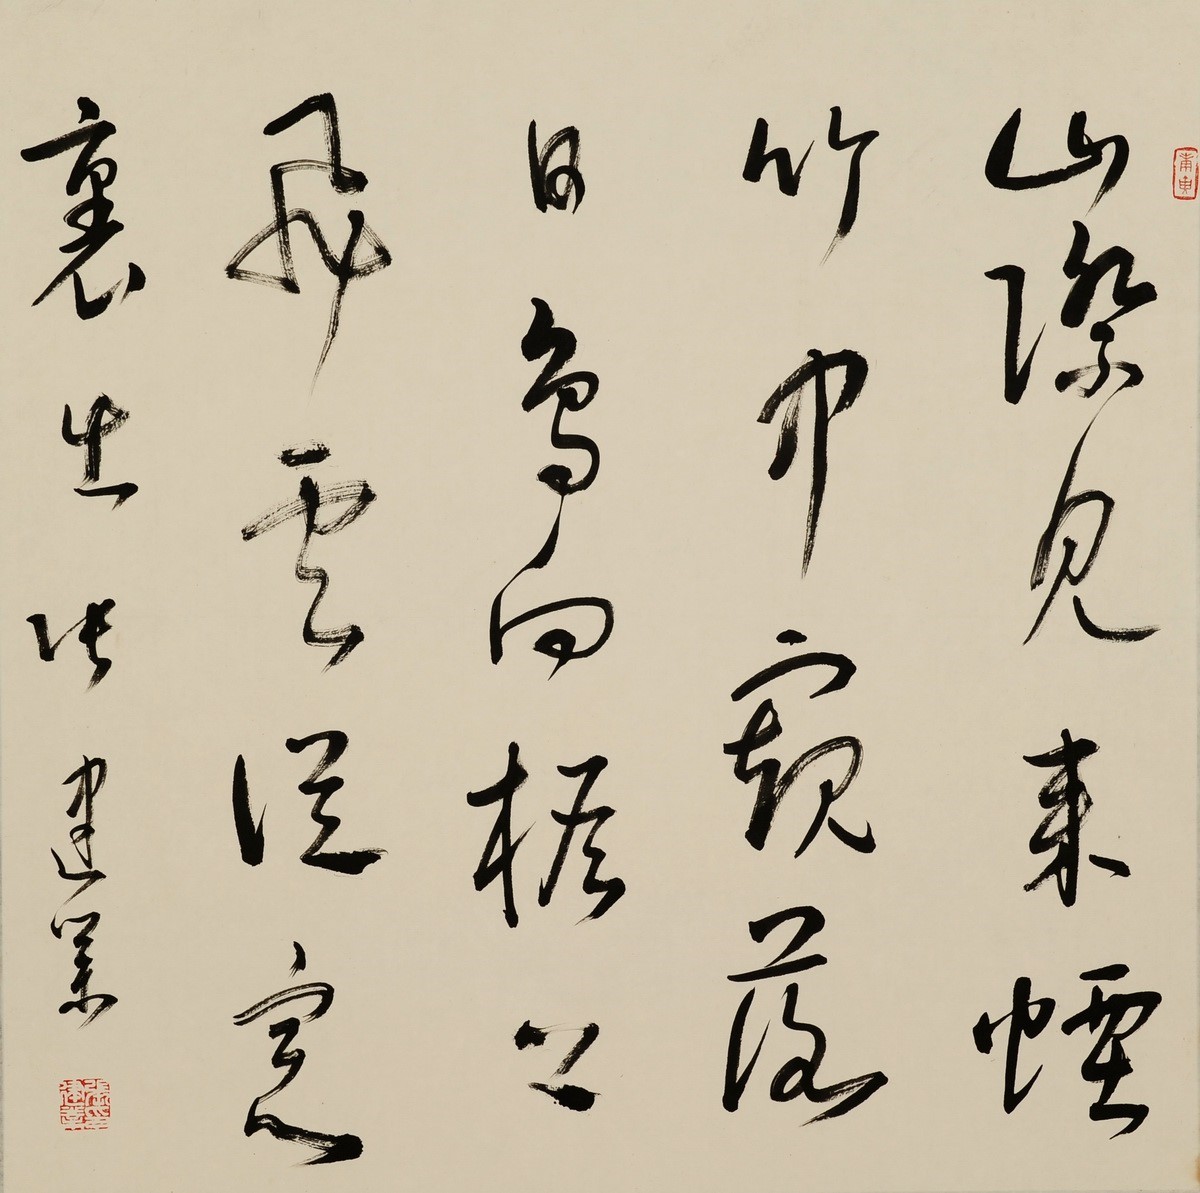 山際見來煙
竹中窺落
日鳥向檐上
飛雲從窓
裏出張建業